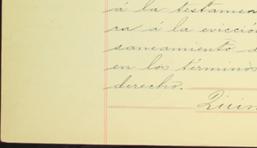 á la testamen
ra á la evicció
saneamiento d
en los términos
derecho.
Quin